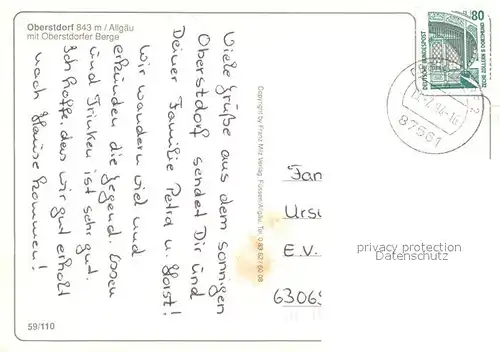 Oberstdorf 843 m / Allgäu
mit Oberstdorfer Berge
Viele Grüße aus dem sonnigen
Oberstdorf sendet Dir und
Deiner Familie Petra u. Horst!
Wir wandern viel und
erkunden die Gegend. Essen
und Trinken ist sehr gut.
Ich hoffe das wir gut erholt
nach Hause kommen!
59/110
Copyright by Franz Milz Verlag, Füssen/Allgäu, Tel. 0 83 62 / 60 08
80
DEUTSCHE BUNDESPOST
ZECHE ZOLLERN II DORTMUND
87561
Fam
Ursu
E.V.
6306
privacy protection
Datenschutz